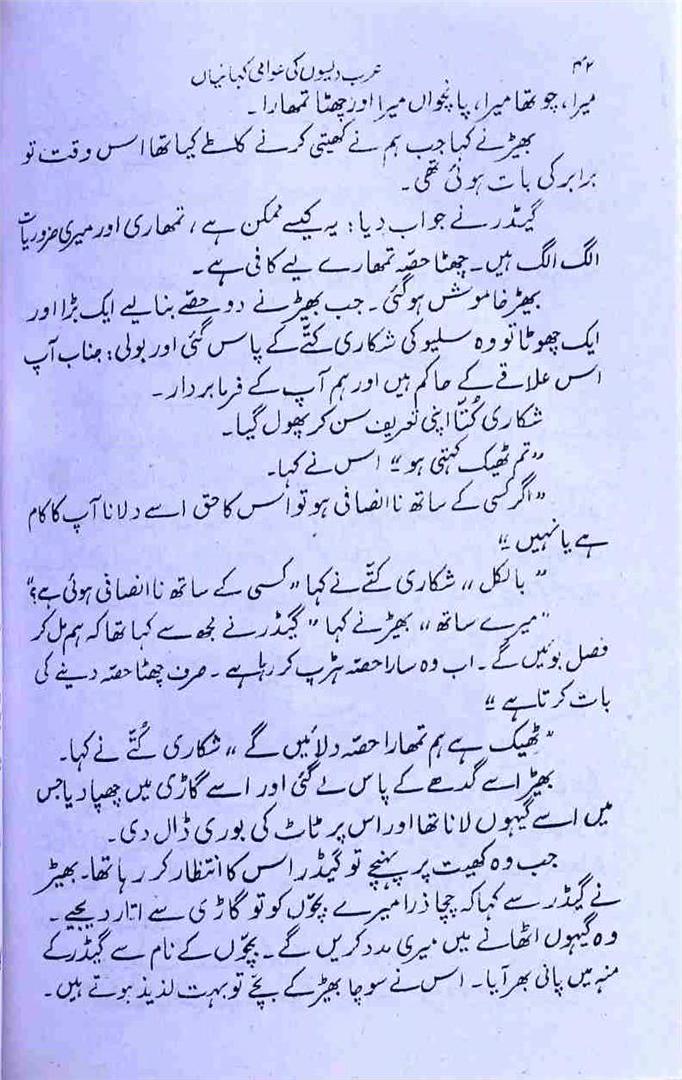 ۴۲
عرب دیسوں کی عوامی کہانیاں
میرا، چوتھا میرا، پانچواں میرا اور چھٹا تمھارا۔
بھیڑنے کہا جب ہم نے کھیتی کرنے کا طے کیا تھا اس وقت تو
برابر کی بات ہوئی تھی۔
گیدڑ نے جواب دیا: یہ کیسے ممکن ہے، تمھاری اور میری ضروریات
الگ الگ ہیں۔ چھٹا حصّہ تمھارے لیے کافی ہے۔
بھیڑ خاموش ہو گئی۔ جب بھیڑنے دو حصّے بنا لیے ایک بڑا اور
ایک چھوٹا تو وہ سلیو کی شکاری کتّے کے پاس گئی اور بولی: جناب آپ
اس علاقے کے حاکم ہیں اور ہم آپ کے فرمابردار۔
شکاری کُتّا اپنی تعریف سن کر پھول گیا۔
”تم ٹھیک کہتی ہو“ اس نے کہا۔
”اگر کسی کے ساتھ ناانصافی ہو تو اُس کا حق اسے دلانا آپ کا کام
ہے یا نہیں“
”بالکل“ شکاری کتّے نے کہا ”کسی کے ساتھ ناانصافی ہوئی ہے؟“
”میرے ساتھ“ بھیڑنے کہا ”گیدڑ نے مجھ سے کہا تھا کہ ہم مل کر
فصل بوئیں گے۔ اب وہ سارا حصّہ ہڑپ کر رہا ہے۔ صرف چھٹا حصّہ دینے کی
بات کرتا ہے“
”ٹھیک ہے ہم تمھارا حصّہ دلائیں گے“ شکاری کُتّے نے کہا۔
بھیڑ اسے گدھے کے پاس لے گئی اور اسے گاڑی میں چھپا دیا جس
میں اسے گیہوں لانا تھا اور اس پر ٹاٹ کی بوری ڈال دی۔
جب وہ کھیت پر پہنچے تو گیدڑ اس کا انتظار کر رہا تھا۔ بھیڑ
نے گیدڑ سے کہا کہ چچا ذرا میرے بچّوں کو تو گاڑی سے اتار دیجیے۔
وہ گیہوں اٹھانے میں میری مدد کریں گے۔ بچّوں کے نام سے گیدڑ کے
منہ میں پانی بھر آیا۔ اس نے سوچا بھیڑ کے بچّے تو بہت لذیذ ہوتے ہیں۔